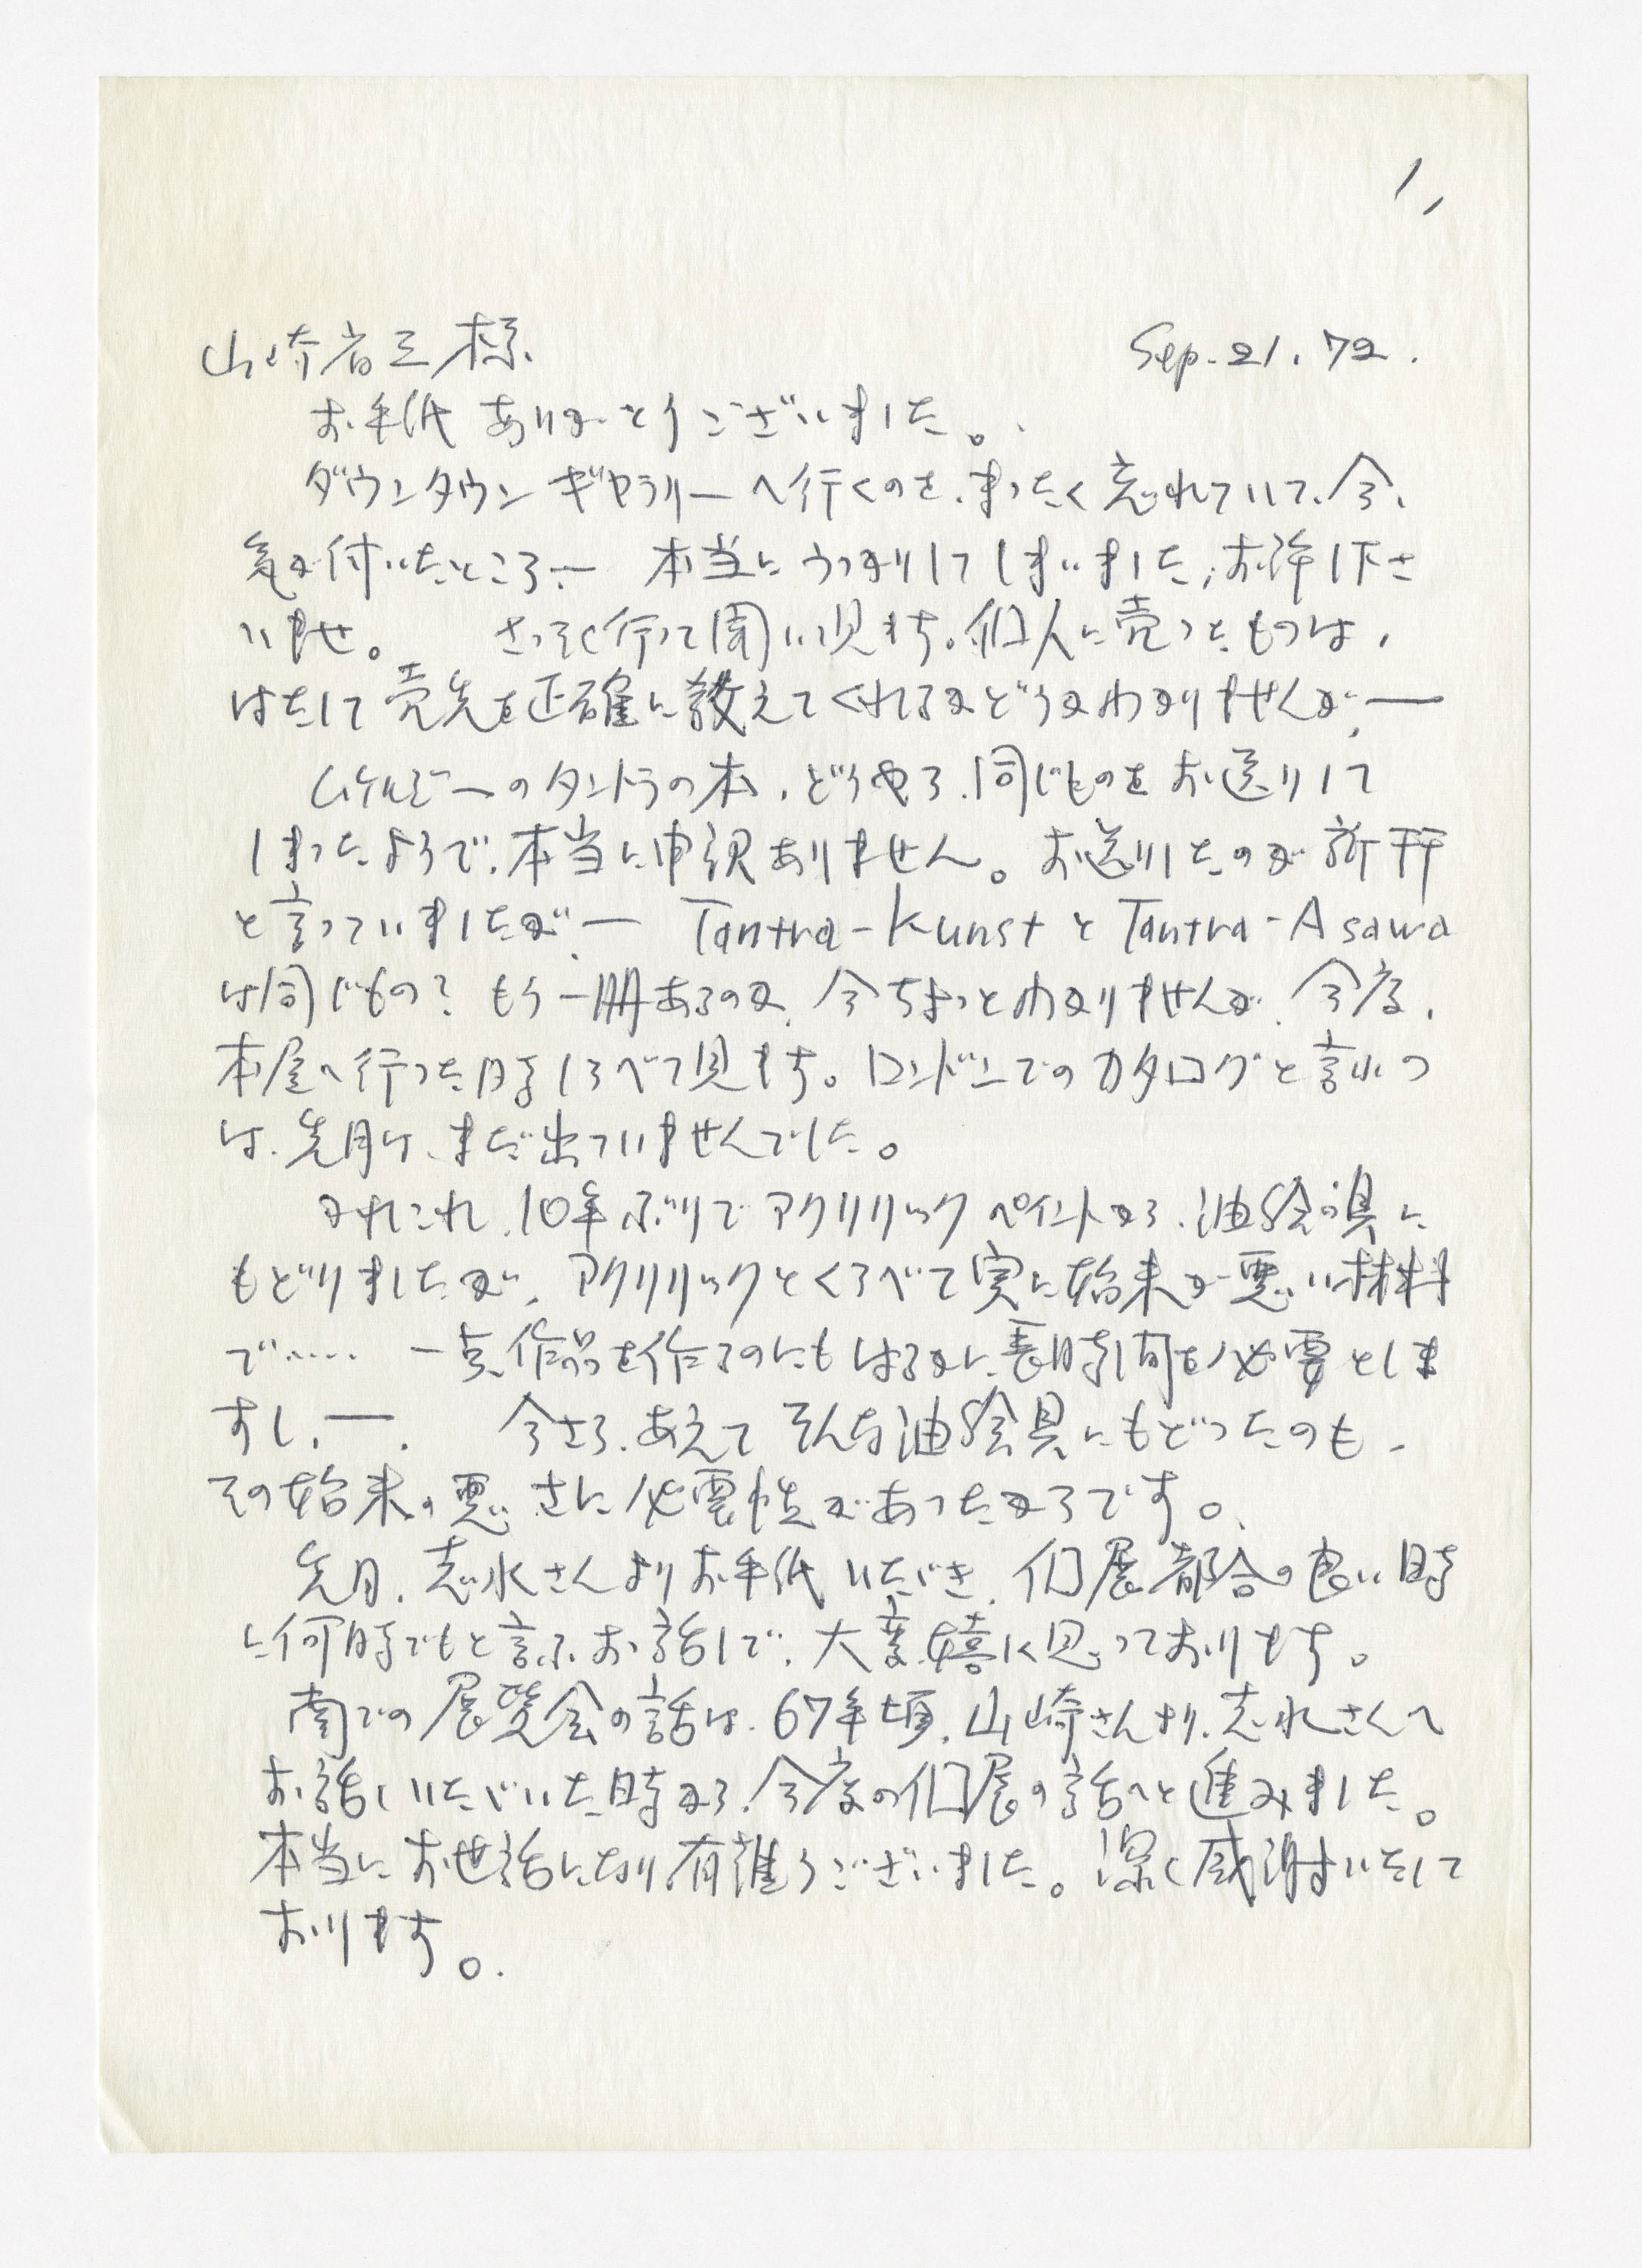 1,
山崎省三様 Sep. 21. 72.
お手紙ありがとうございました。
ダウンタウン ギャラリーへ行くのを、まったく忘れていて、今、
気が付いたところ― 本当にうっかりしてしまいました、お許し下さ
いませ。 さっそく行って聞いて見ます。個人に売ったものは、
はたして売先を正確に教えてくれるかどうかわかりませんが、―
ムケルジーのタントラの本、どうやら、同じものをお送りして
しまったようで、本当に申訳ありません。お送りしたのが新刊
と言っていましたが、― Tantra-Kunst と Tantra-Asawa
は同じもの? もう一冊あるのか、今ちょっとわかりませんが、今度、
本屋へ行った時しらべて見ます。ロンドンでのカタログと言ふの
は、先月は、まだ出ていませんでした。
かれこれ、10年ぶりでアクリリック ペイントから、油絵の具に
もどりましたが、アクリリックとくらべて実に始末が悪い材料
で‥‥‥ 一点、作品を作るのにもはるかに長時間を必要としま
すし、―. 今さら、あえて そんな油絵具にもどったのも、
その始末の悪さに必要性があったからです。
先月、志水さんよりお手紙いただき、個展都合の良い時
に何時でもと言ふお話しで、大変嬉しく思っております。
南での展覧会の話は、67年頃、山崎さんより、志水さんへ
お話しいただいた時から、今度の個展の話へと進みました。
本当にお世話になり、有難うございました。深く感謝いたして
おります。